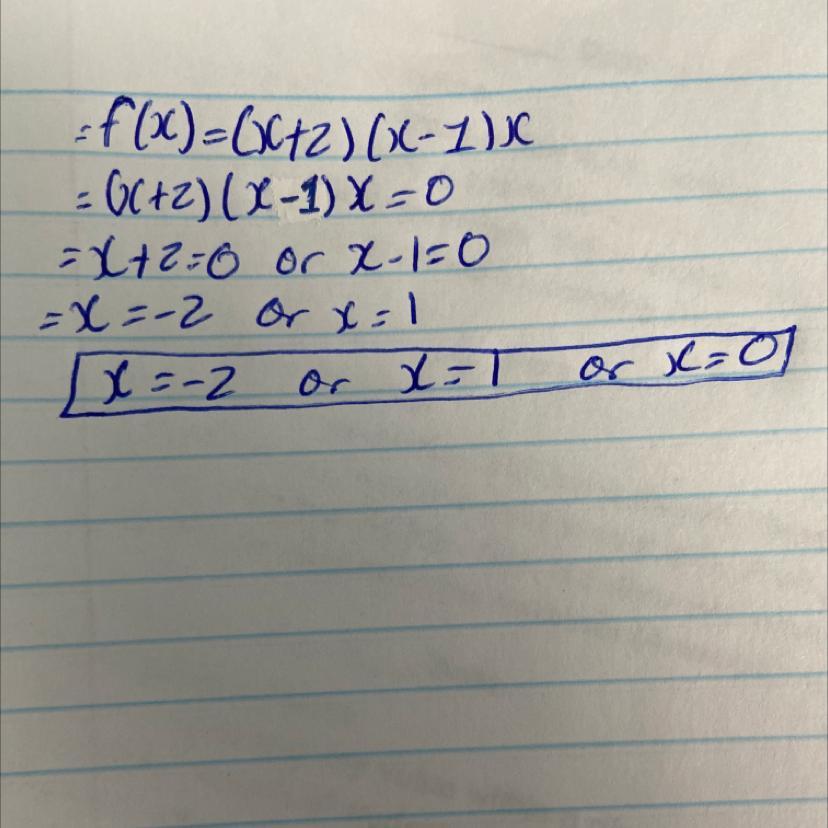 =f(x)=(x+2)(x-1)x
=(x+2)(x-1)x=0
=x+2=0 or x-1=0
=x=-2 or x=1
x=-2 or x=1 or x=0